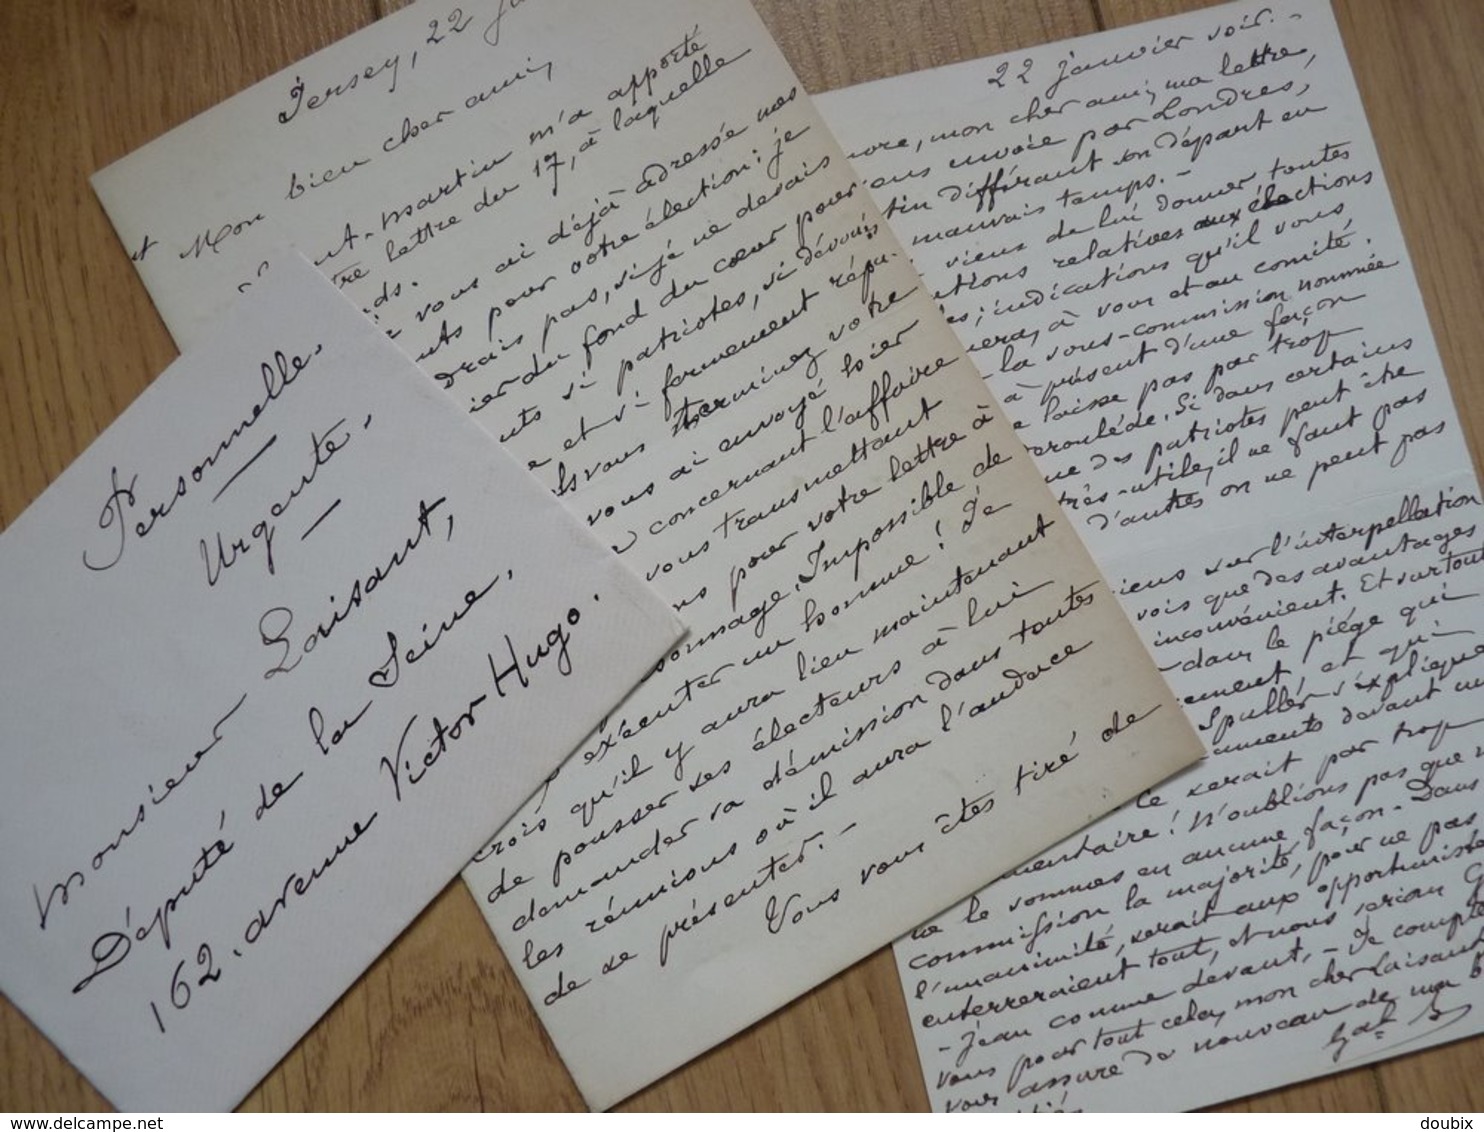 Personnelle.
Urgente.
Monsieur Laisant,
Député de la Seine,
162. avenue Victor Hugo.
Jersey, 22
Mon bien cher ami,
martin m'a apporté
lettre du 17, à laquelle
vous ai déjà adressé mes
pour votre élection; je
pas, si je ne devais
du fond du cœur pour
si patriotes, si dévoués
et si fermement répu-
vous terminez votre
vous ai envoyé hier
concernant l'affaire
vous transmettant
pour votre lettre à
Impossible de
exécuter un homme! Je
crois qu'il y aura lieu maintenant
de pousser ses électeurs à lui
demander sa démission dans toutes
les réunions où il aura l'audace
de se présenter. -
Vous vous êtes tiré de
22 janvier soir. -
mon cher ami, ma lettre
envoie par Londres,
différant son départ en
mauvais temps. -
viens de lui donner toutes
relatives aux élections
indications qu'il vous
à vous et au comité.
la sous-commission nommée
à présent d'une façon
laisse pas par trop
Si dans certains
des patriotes peut être
très-utile, il ne faut pas
d'autres on ne peut pas
sur l'interpellation
vois que des avantages
inconvénient. Et surtout
dans le piège qui
et qui
Spuller s'explique
devant un
Ce serait par trop
N'oublions pas que
le sommes en aucune façon - Dans
commission la majorité, pour ne pas
l'unanimité, serait aux opportunistes
enterreraient tout, et nous serions
- jean comme devant. - Je compte
vous pour tout cela, mon cher Laisant
vous assure de nouveau de ma
doubix